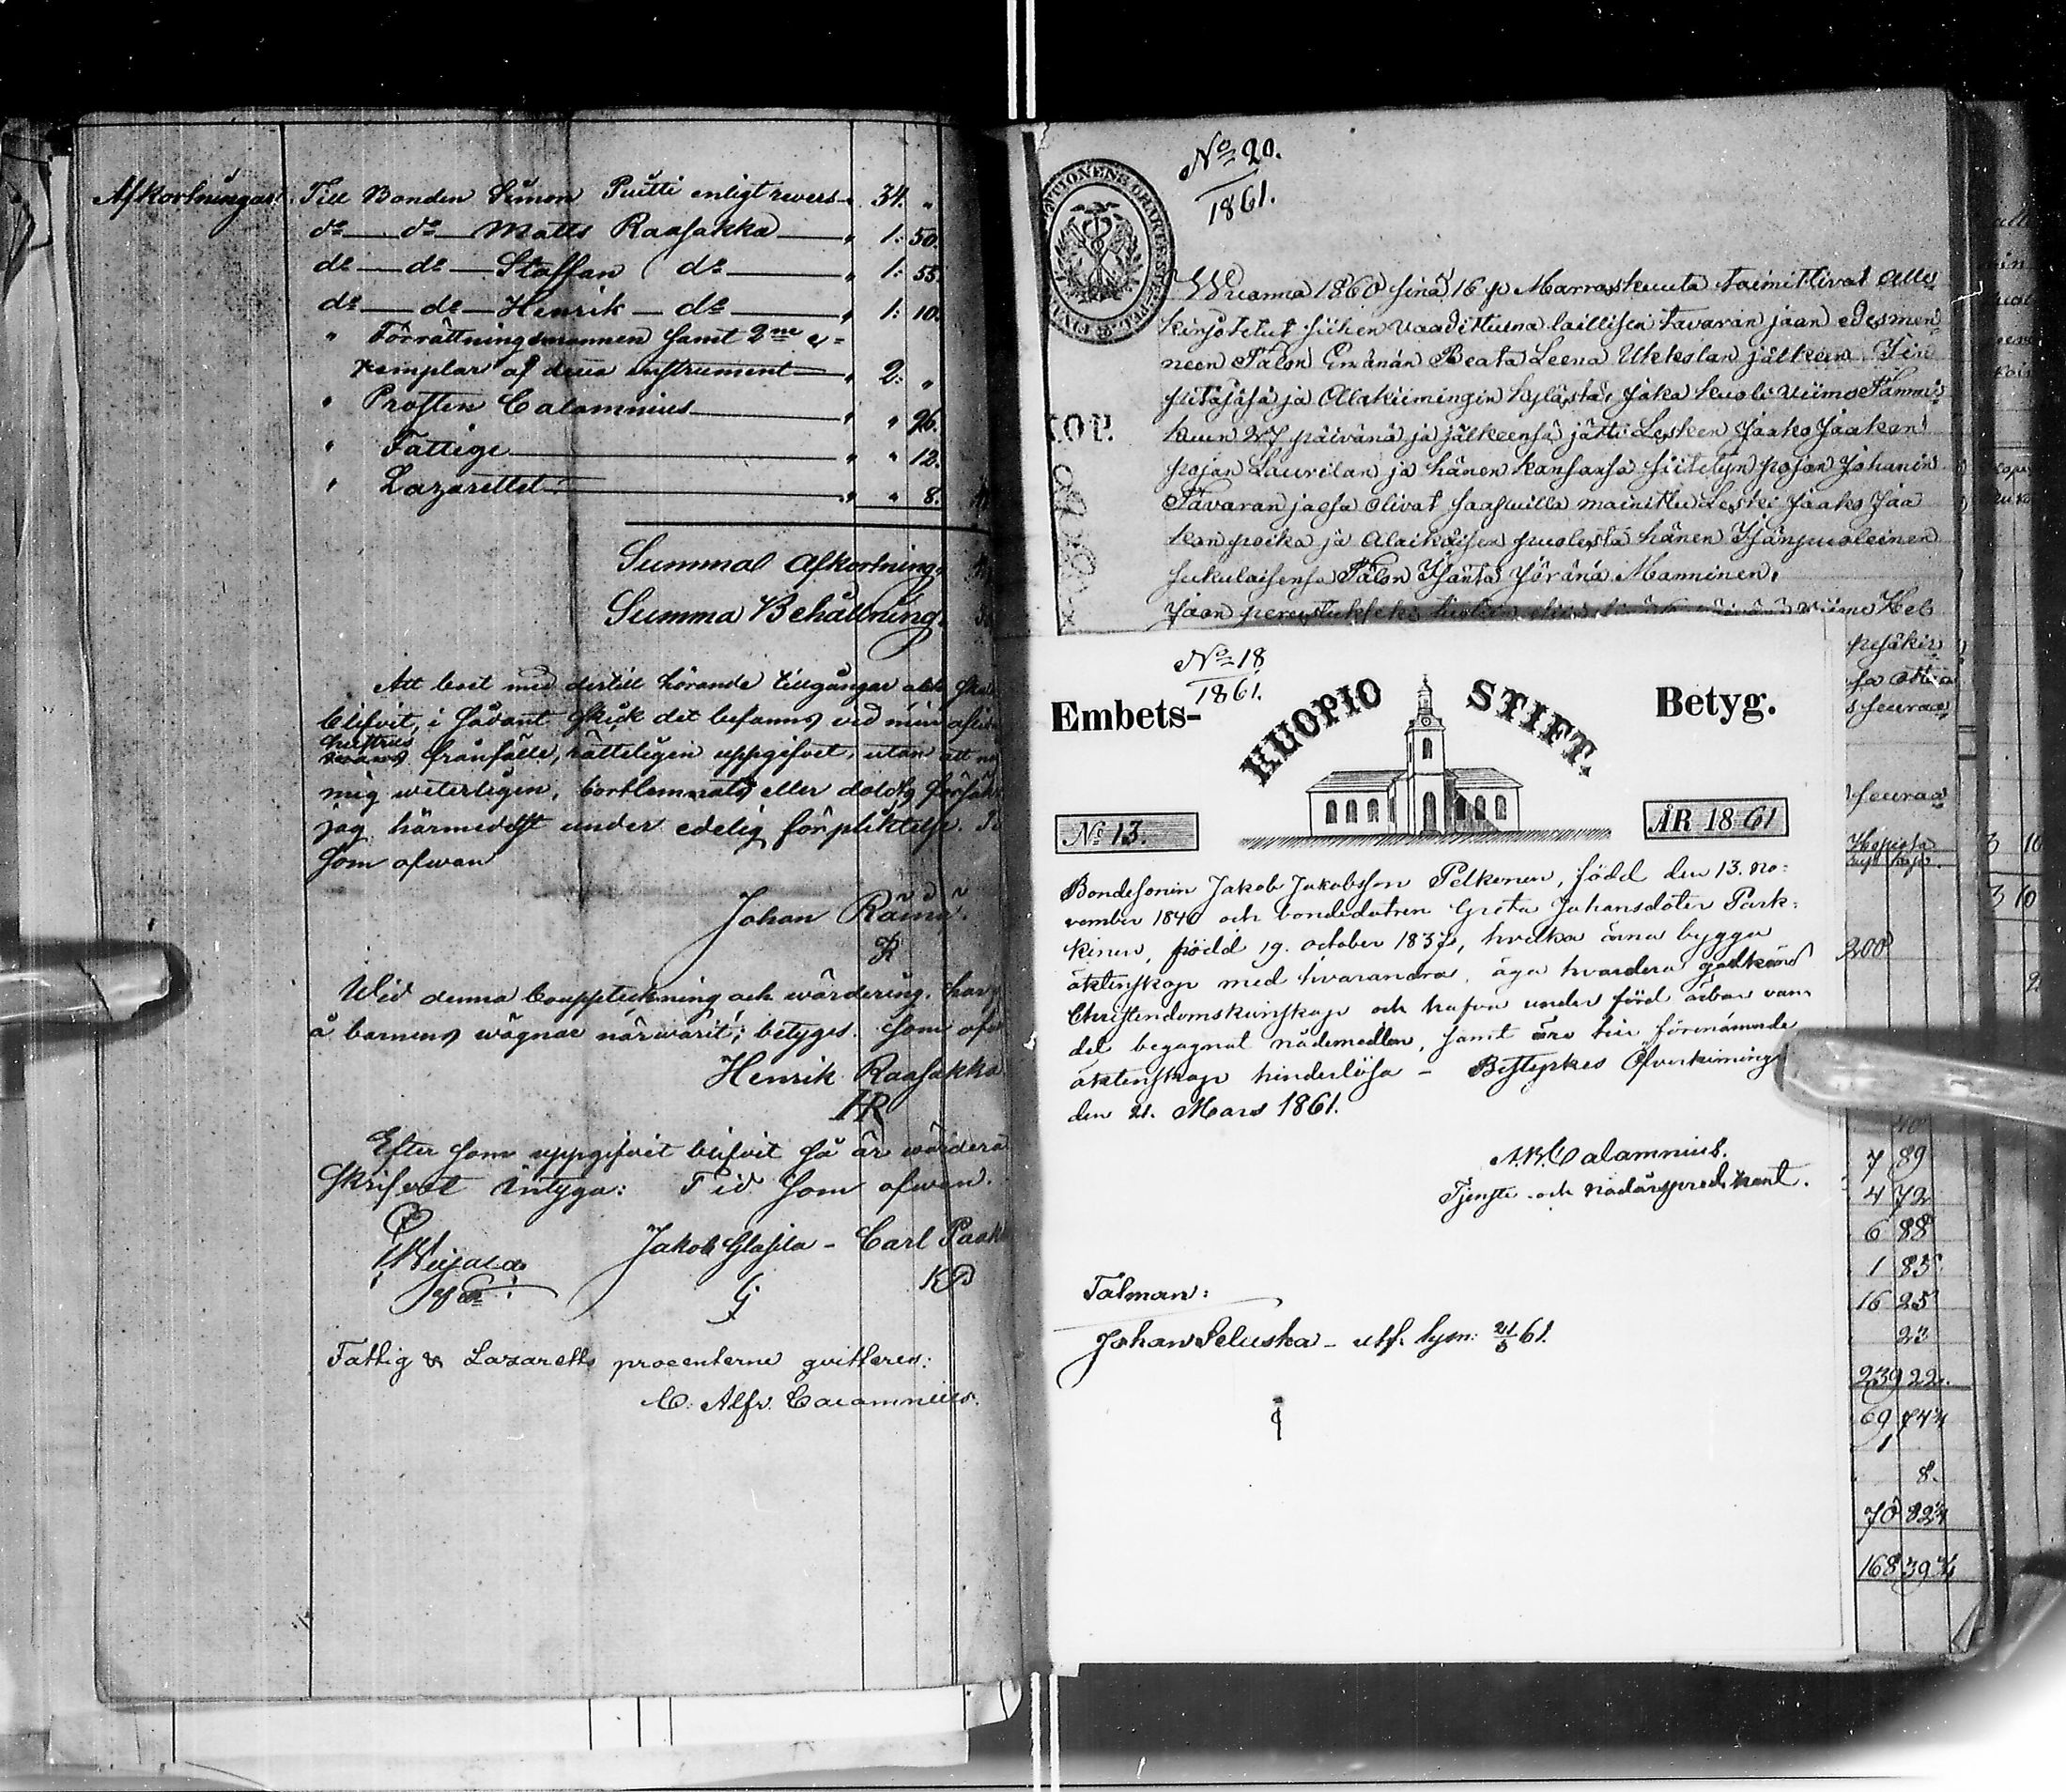 Afkortningar. Till Bonden Simon Puitti enligt revers „ 34. „
do — do — Matts Raasakka — „ 1: 50.
do — do — Staffan do — „ 1: 55.
do — do — Henrik — do — „ 1: 10.
„ Förrättningsmannen samt 2ne e=
xemplar af detta instrument — „ 2: „
„ Prosten Calamnius — „ „ 96.
„ Fattige — „ „ 12.
„ Lazarettet — „ „ 8.
Summa Afkortning.
Summa Behållning.
Att boet med dertill hörande tillgångar och
blifvit, i sådant skick det befanns vid min
hustrus frånfälle, rätteligen uppgifvet, utan att
mig veterligen, bortlemnats eller doldt,
jag härmedelst under edelig förpliktelse.
Som ofwan
Johan Räinä.
R
Wid denna bouppteckning och wärdering,
å barnens wägnar närwarit; betyges. Som
Henrik Raasakka
HR
Efter som uppgifvit blifvit så är
skrifvet intyga: Tid som ofwan.
Jakob Glasila – Carl
G KP
Fattig & Lazaretts procenterne qvitteres:
C. Alfr. Calamnius.
No 20.
1861.
Wuonna 1860 sinä 16 p Marraskuuta toimittivat alle
kirjotetut siihen vaadittuna laillisen tavaran jaon edesmen
neen Talon Emänän Beata Leena Ukkolan jälkeen Iin
pitäjäsä ja Alakiimingin kylästä, joka kuoli viime Tammi
kuun 27 päivänä ja jälkeensä jätti Lesken Jaako Jaakon
pojan Laurilan ja hänen kansansa siitetyn pojan Johanin
Tavaran jaosa olivat saapuilla mainittu Leski Jaako Jaa
kon poika ja Alaikäisen puolesta hänen Isänpuoleinen
sukulaisensa Talon Isäntä Yöränä Manninen.
KOP.
No 18
1861.
Embets- KUOPIO STIFT. Betyg.
No 13. ÅR 1861
Bondesonen Jakob Jakobsson Pelkonen, född den 13. No:
vember 1840 och bondedotren Greta Johansdoter Park:
kinen, född 19. october 1837, hvilka ärna bygga
äktenskap med hvarandra, äga hvardera godkänd
Christendomskunskap och hafva under förd ärbar van
del begagnat nådemedlen, samt äro till förenämnde
äktenskap hinderlösa – Bestyrkes Öfverkiminge
den 21. Mars 1861.
A. B. Calamnius.
Tjenste- och nådårspredikant.
Talman:
Johan Seluska – utf. lysn: 21/3 61.
seuraa
200
7 89
4 72
6 88
1 85
16 25
23
239 22.
69 74¼
1
8.
70 82¼
168 39¾